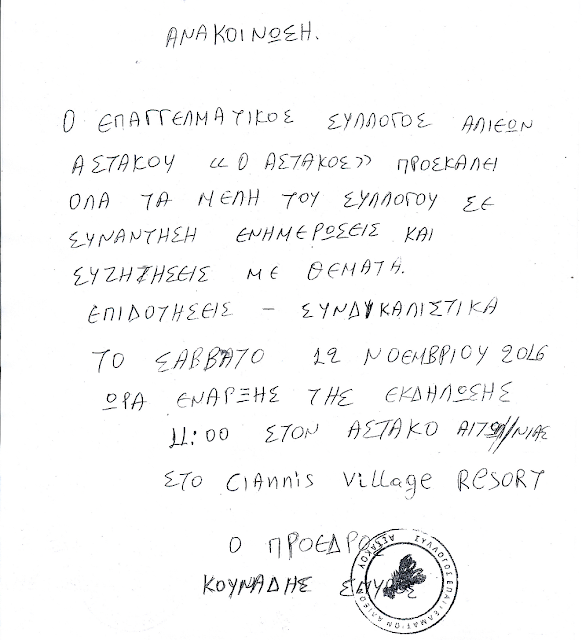 ΑΝΑΚΟΙΝΩΣΗ.
Ο ΕΠΑΓΓΕΛΜΑΤΙΚΟΣ ΣΥΛΛΟΓΟΣ ΑΛΙΕΩΝ
ΑΣΤΑΚΟΥ «Ο ΑΣΤΑΚΟΣ» ΠΡΟΣΚΑΛΕΙ
ΟΛΑ ΤΑ ΜΕΛΗ ΤΟΥ ΣΥΛΛΟΓΟΥ ΣΕ
ΣΥΝΑΝΤΗΣΗ ΕΝΗΜΕΡΩΣΕΙΣ ΚΑΙ
ΣΥΖΗΤΗΣΕΙΣ ΜΕ ΘΕΜΑΤΑ.
ΕΠΙΔΟΤΗΣΕΙΣ - ΣΥΝΔΥΚΑΛΙΣΤΙΚΑ
ΤΟ ΣΑΒΒΑΤΟ 12 ΝΟΕΜΒΡΙΟΥ 2016
ΩΡΑ ΕΝΑΡΞΗΣ ΤΗΣ ΕΚΔΗΛΩΣΗΣ
11:00 ΣΤΟΝ ΑΣΤΑΚΟ ΑΙΤΩΛ/ΝΙΑΣ
ΣΤΟ CIANNIS VILLAGE RESORT
Ο ΠΡΟΕΔΡΟΣ
ΚΟΥΝΑΔΗΣ ΣΠΥΡΟΣ
ΣΥΛΛΟΓΟΣ ΕΠΑΓΓΕΛΜΑΤΙΩΝ ΑΛΙΕΩΝ ΑΣΤΑΚΟΥ